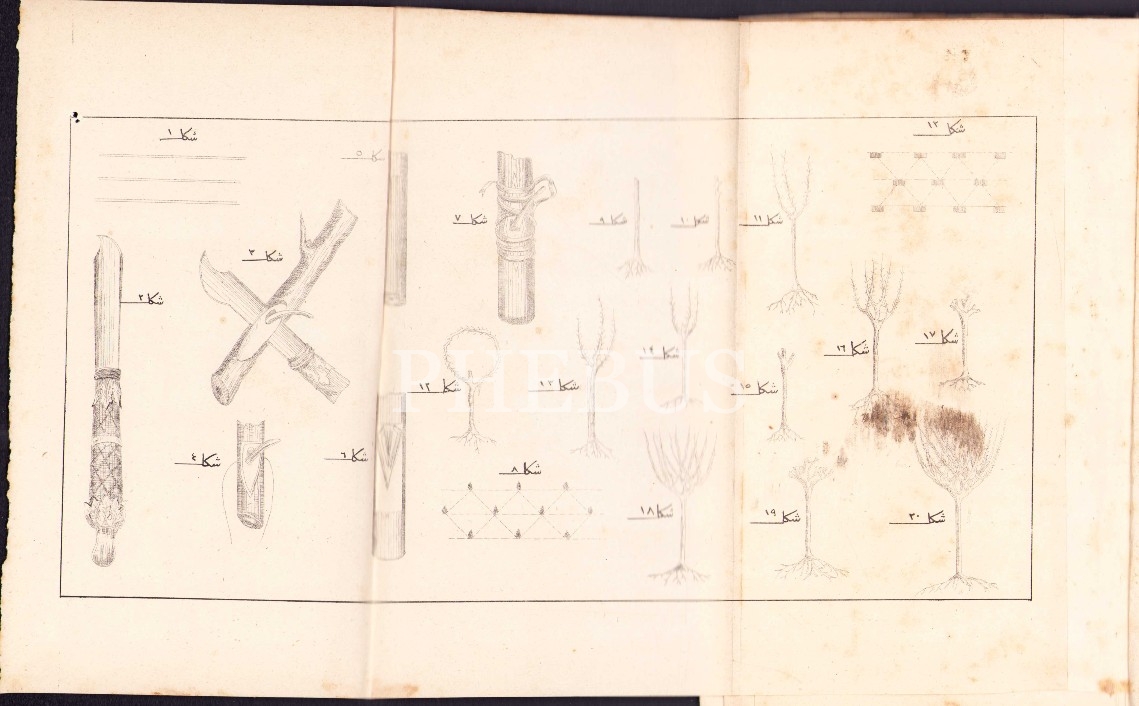 شكل ١
شكل ٢
شكل ٣
شكل ٤
شكل ٥
شكل ٦
شكل ٧
شكل ٨
شكل ٩
شكل ١٠
شكل ١١
شكل ١٢
شكل ١٢
شكل ١٣
شكل ١٤
شكل ١٥
شكل ١٦
شكل ١٧
شكل ١٨
شكل ١٩
شكل ٢٠
PHEBUS